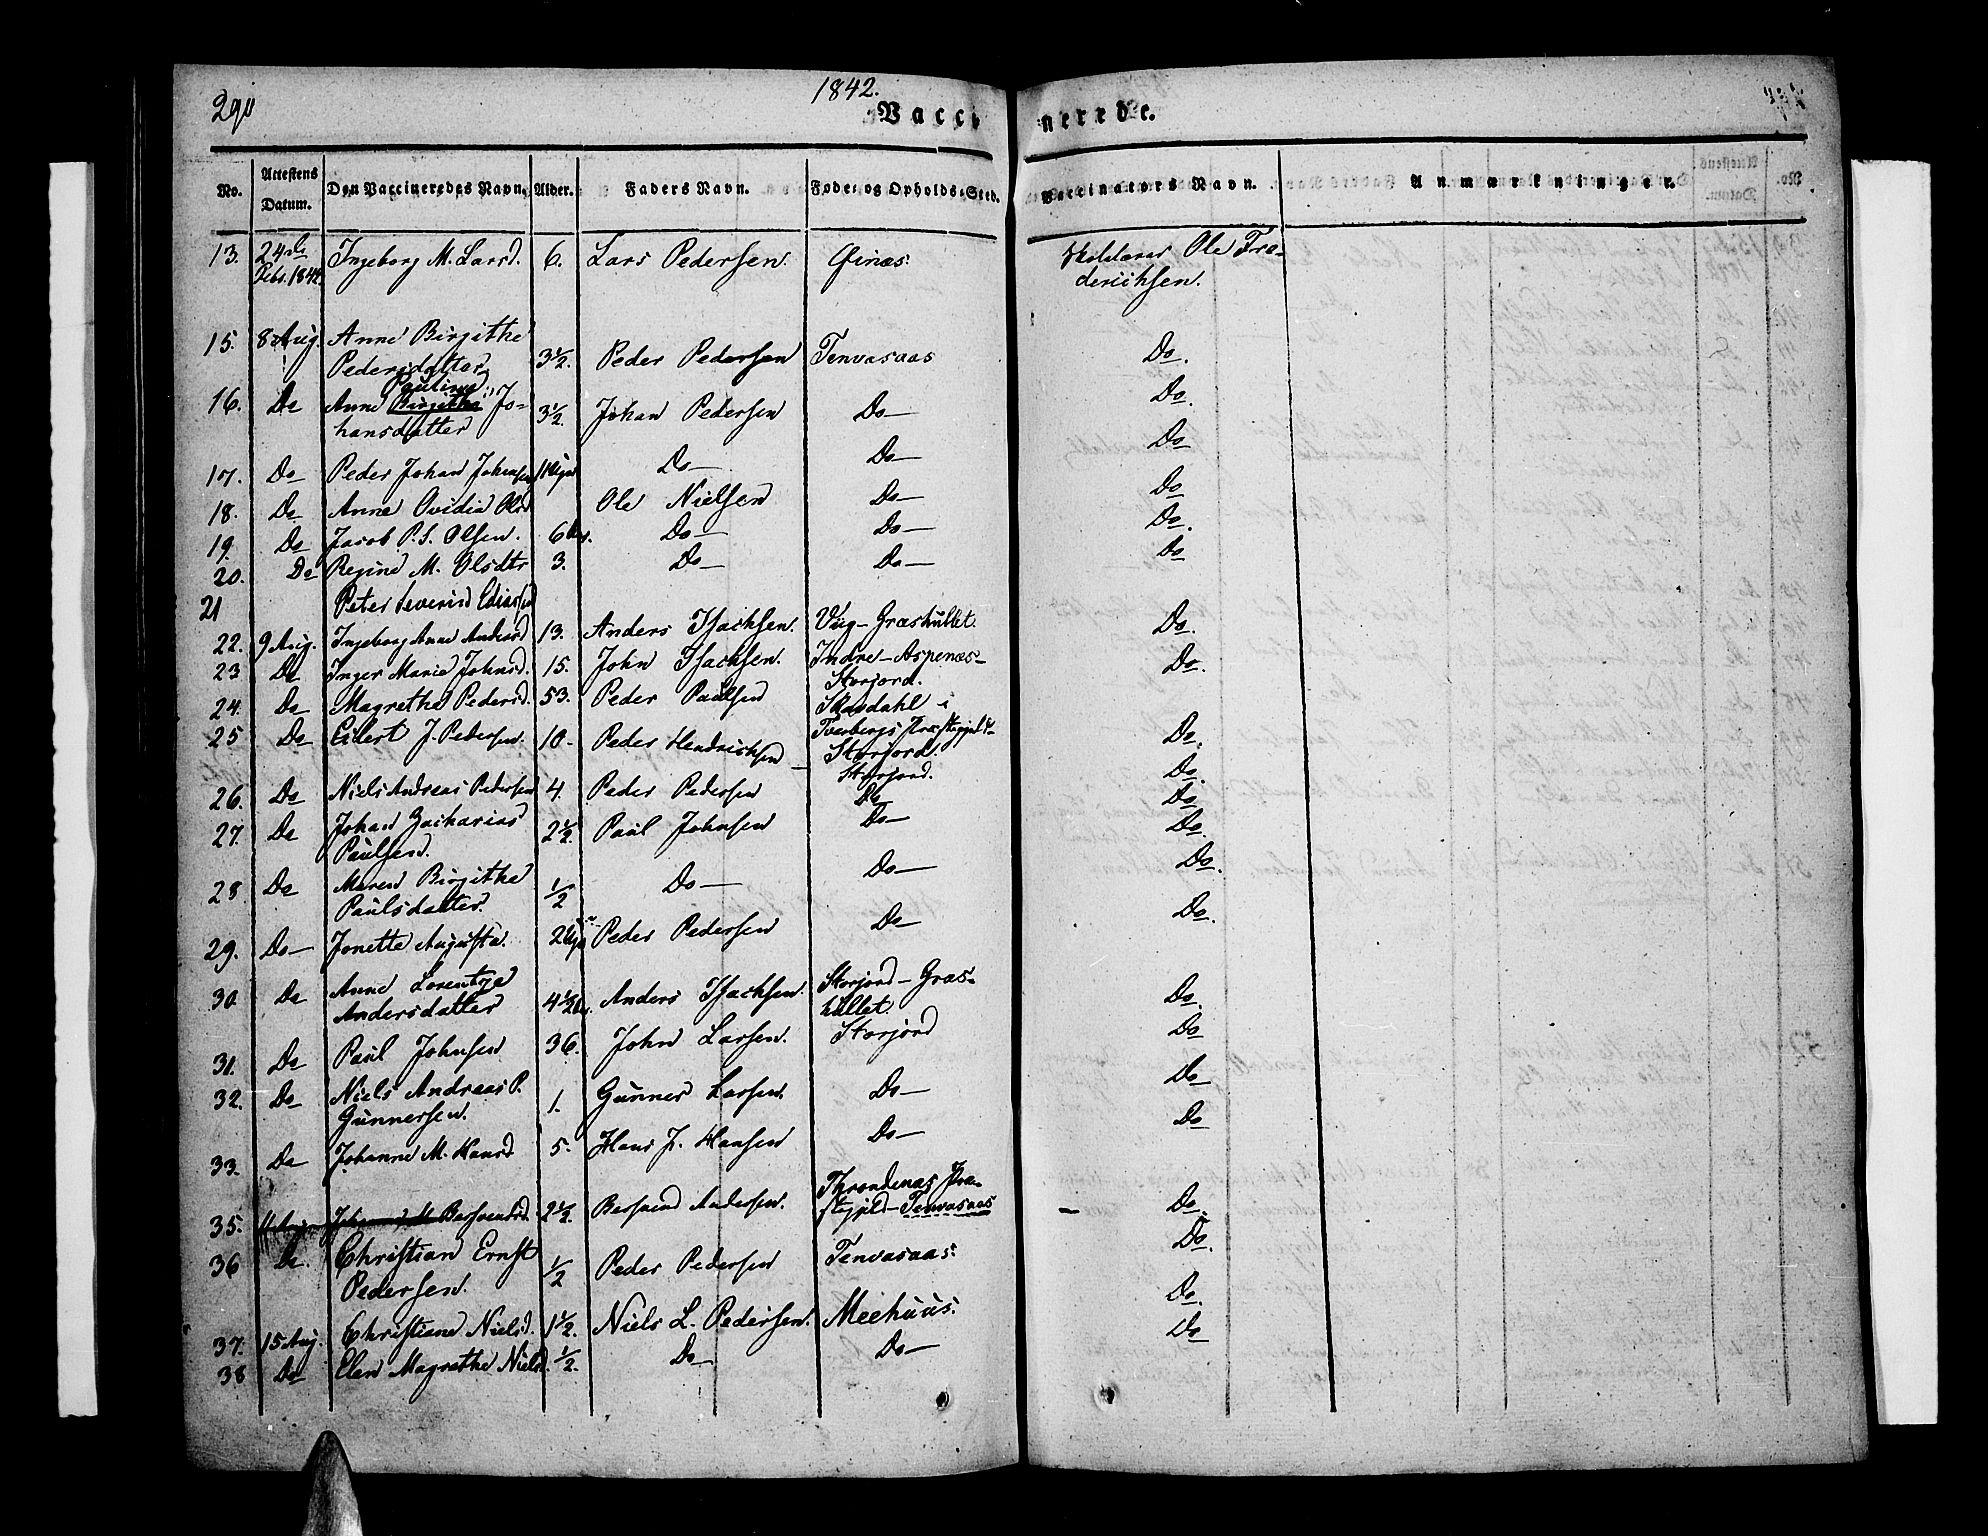 290
1842.
Vaccinerede.
No. Attestens Datum. Den Vaccineredes Navn. Alder. Faders Navn. Føde- og Opholds-Sted. Vaccinators Navn. Anmærkninger.
13. 24de Ingeborg M. Larsd. 6. Lars Pedersen. Finæs. Ole Fre-
Febr. 1842. derichsen.
15. 8 Aug. Anne Birgithe
Pedersdatter 3 1/2. Peder Pedersen Tenvasaas Do.
Pauline
16. Do Anne Birgitha Jo- 3 1/2. Johan Pedersen Do— Do.
hansdatter
17. Do Peder Johan Johansen 11 Do— Do— Do
18. Do Anne Ovidia Olsd Ole Nielsen Do— Do
19. Do Jacob P. S. Olsen. 6 Do— Do— Do.
20. Do Regine M. Olsdtr 3. Do— Do— Do
21 Peter Severin
22. 9 Aug. Ingeborg Anne Andersd 13. Anders Isachsen. Vüg-Græshullet. Do.
23 Do Inger Marie Johnsd. 15. John Isachsen. Indre-Aspenæs- Do.
Storjord.
24. Do Magrethe Pedersd. 53. Peder Paulsen Skasdahl i
25 Do Eilert J. Pedersen. 10. Peder Hendrichsen Tverbergs Præstegjeld- Do.
Storjord.
26. Do Niels Andreas Pedersen 4. Peder Pedersen Storjord. Do.
Do Do
27. Do Johan Zacharias 2 1/2. Paul Johnsen Do— Do.
Paulsen.
28. Do Maren Birgithe 1/2 Do— Do— Do.
Paulsdatter.
29. Do— Jonette Augusta. 2 Peder Pedersen Do— Do.
30. Do Anne Lorentze 4 1/2 Anders Isachsen. Storjord-Græs- Do.
Andersdatter hullet.
31. Do Paul Johnsen 36. John Larsen. Storjord Do
32. Do Niels Andreas P. 1. Gunner Larsen. Do— Do
Gunnersen.
33. Do Johanne M. Hansd 5. Hans J. Hansen Do— Do
35. 11 Aug Johanna M Bersvendsd. 2 1/2. Bersvend Andersen. Throndenæs Præ- Do.
stegjeld-Tenvasaas
36 Do. Christian Ernst 1/2 Peder Pedersen Tenvasaas. Do.
Pedersen.
37. 15 Aug. Christiane Nielsd. 1 1/2. Niels L. Pedersen. Meehuus. Do.
38 Do Elen Magrethe Nielsd. 1/2. Do— Do— Do